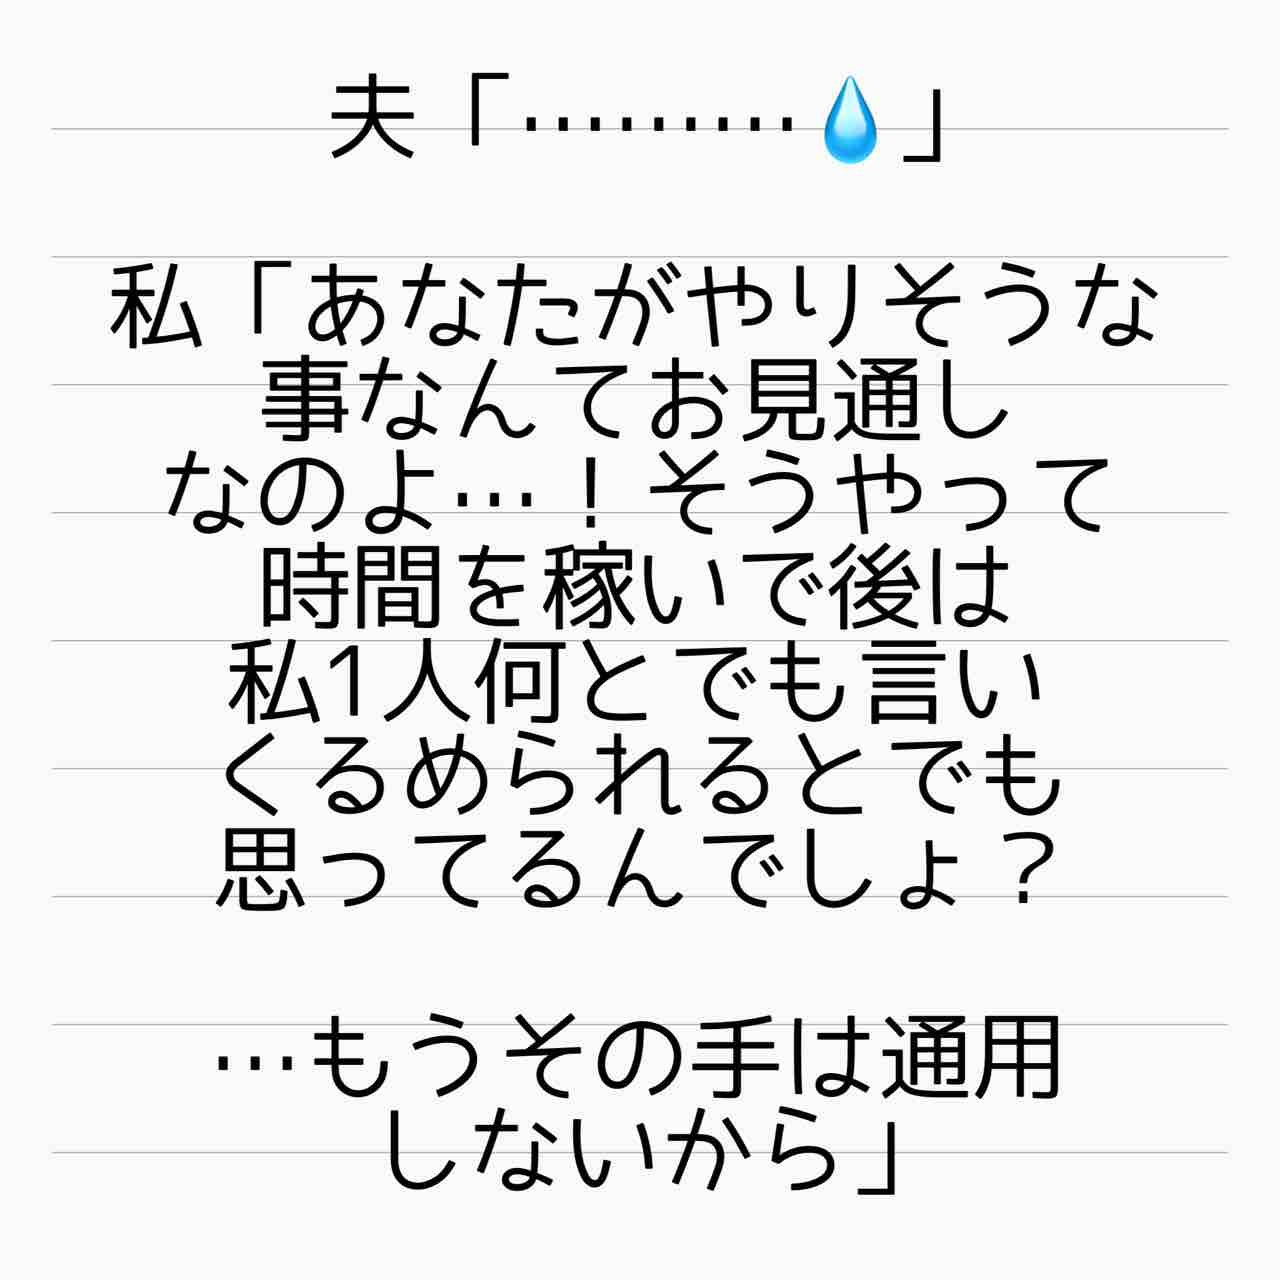 夫「………💧」
私「あなたがやりそうな
事なんてお見通し
なのよ…！そうやって
時間を稼いで後は
私1人何とでも言い
くるめられるとでも
思ってるんでしょ？
…もうその手は通用
しないから」